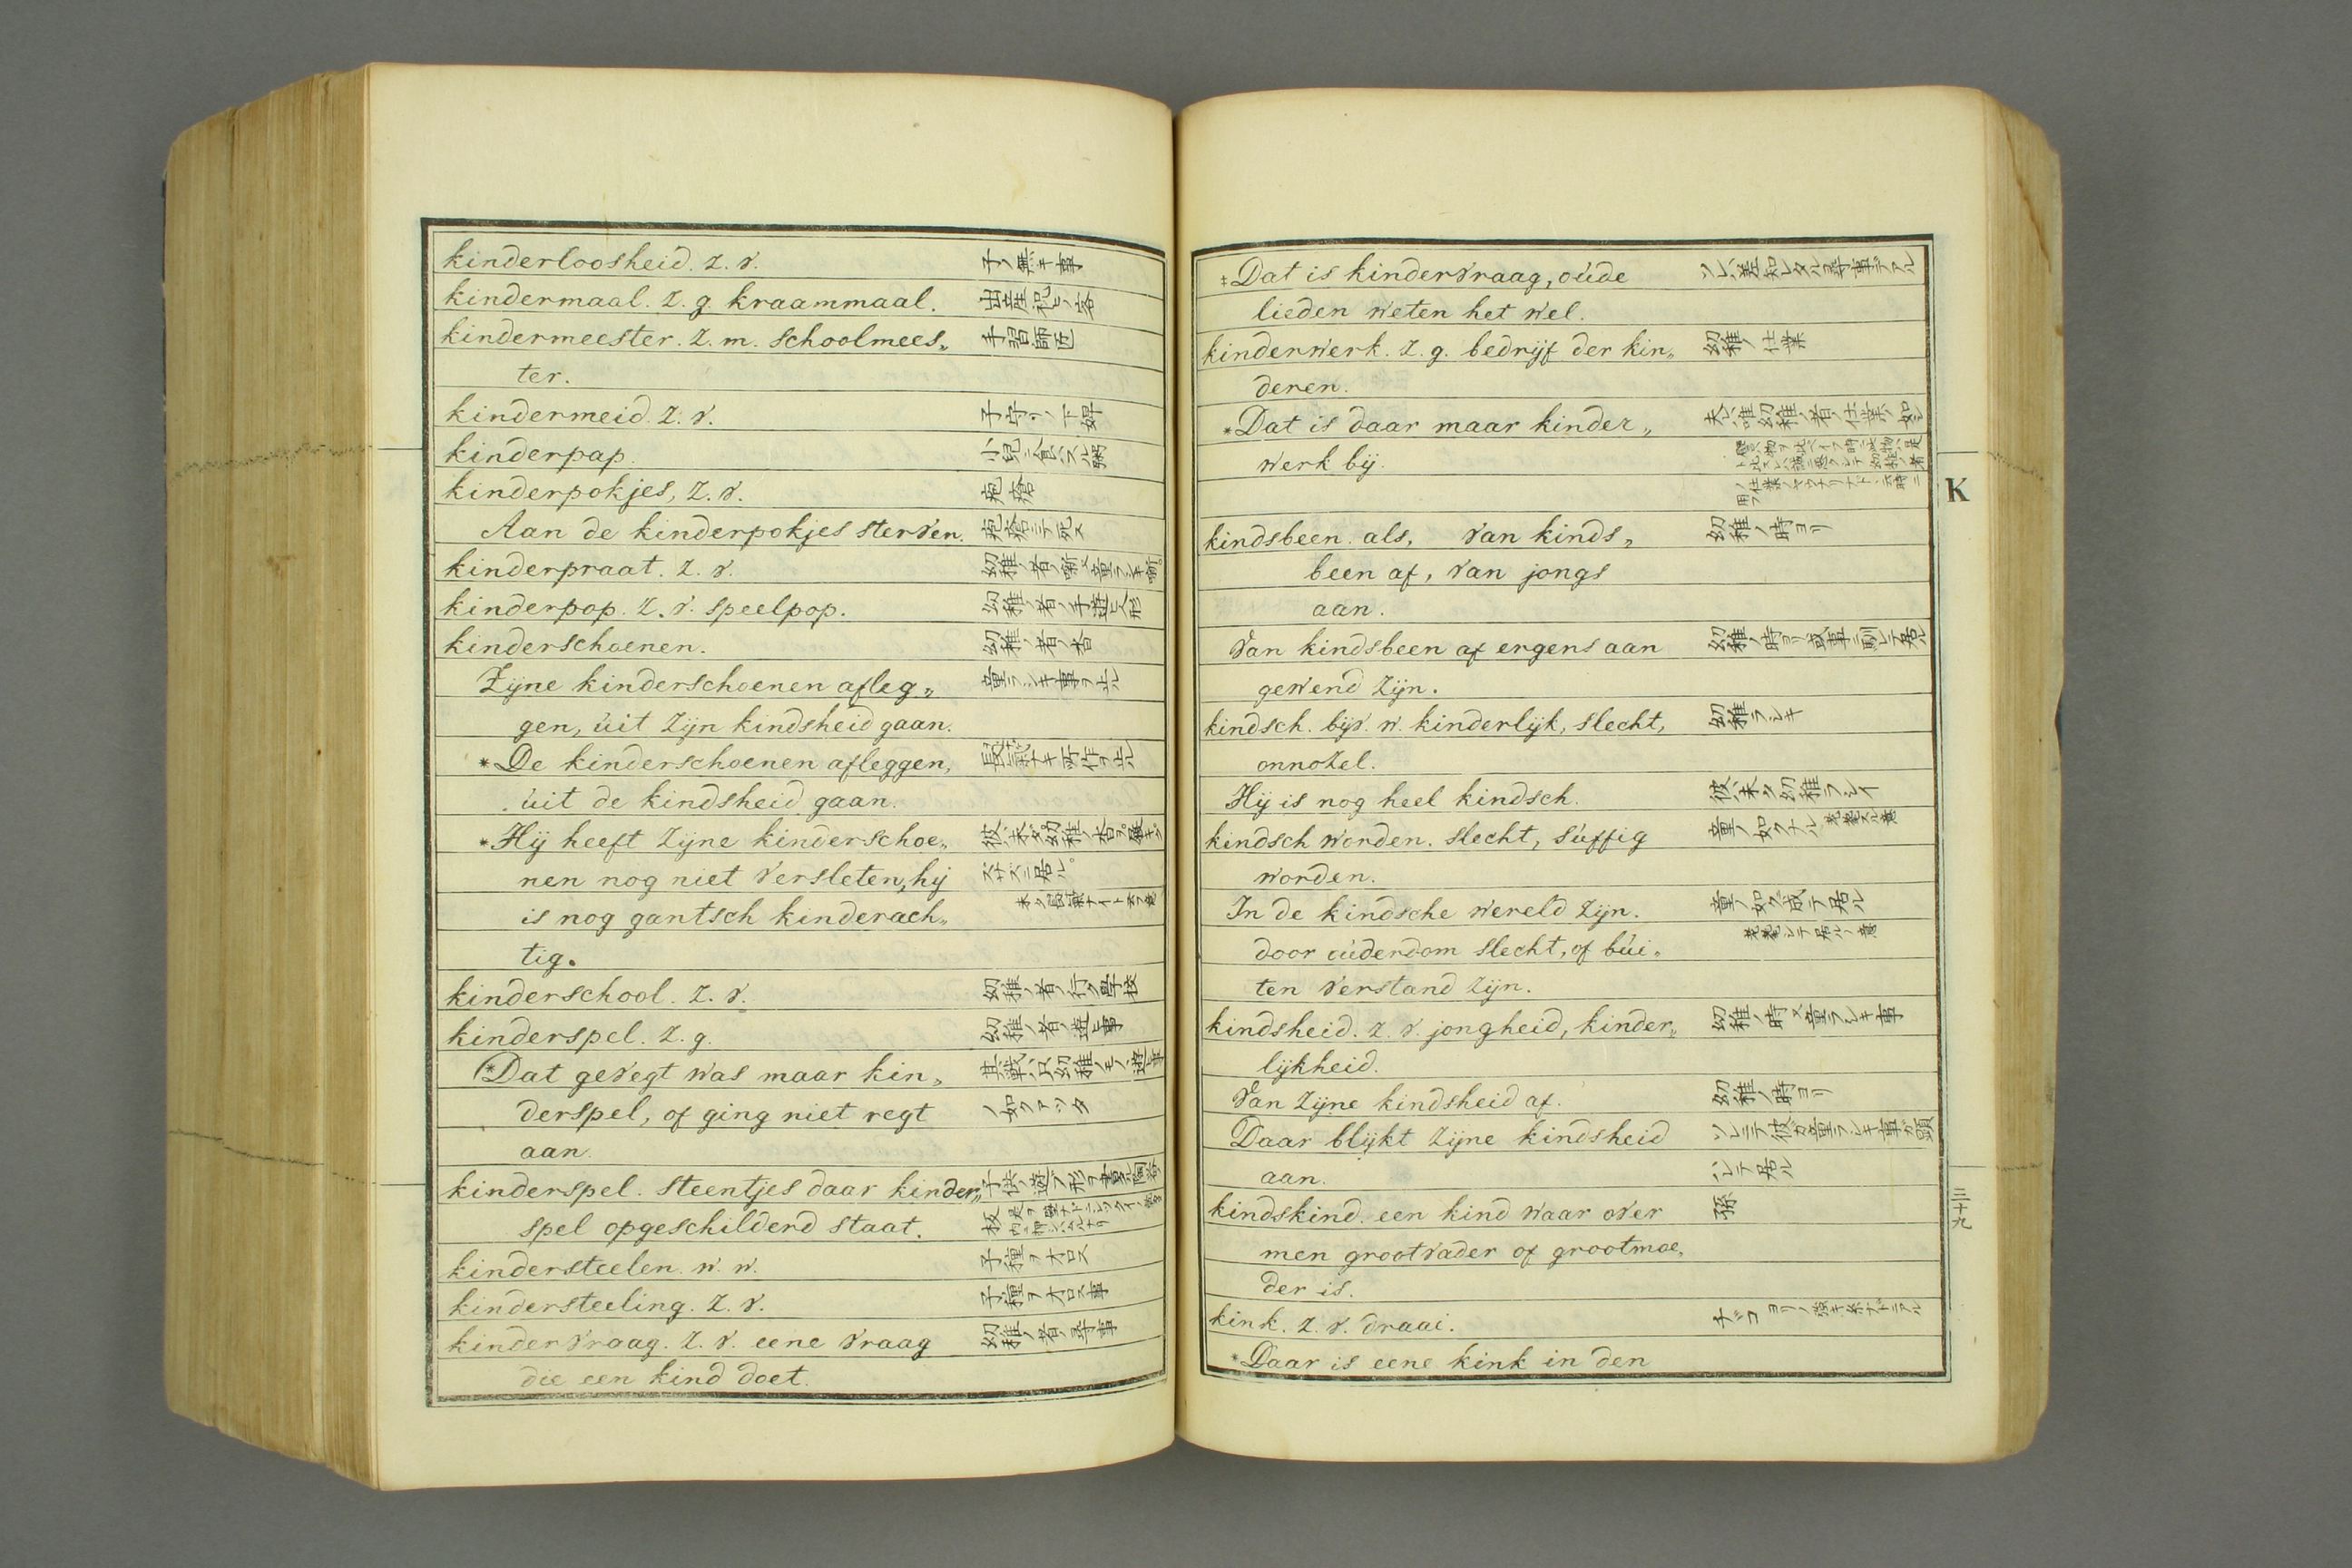 kinderloosheid. z. v. 子ノ無キ事
kindermaal. z. g. kraammaal. 出産祝ヒノ客
kindermeester. z. m. schoolmees„ 手習師匠
ter.
kindermeid. z. v. 子守リノ下婢
kinderpap. 小児ニ食ハスル粥
kinderpokjes, z. v. 疱瘡
Aan de kinderpokjes sterven. 疱瘡ニテ死ス
kinderpraat. z. v. 幼稚ノ者ノ噺又童ラシキ噺
kinderpop. z. v. speelpop. 幼稚ノ者ノ手遊人形
kinderschoenen. 幼稚ノ者ノ沓
Zijne kinderschoenen afleg„ 童ラシキ事ヲ止ル
gen, uit zijn kindsheid gaan.
*De kinderschoenen afleggen,
uit de kindsheid gaan.
*Hij heeft zijne kinderschoe„ 彼ハ未タ幼稚ノ沓ヲ履キ
nen nog niet versleten, hij
is nog gantsch kinderach„
tig.
kinderschool. z. v. 幼稚ノ者ノ行ク学校
kinderspel. z. g. 幼稚ノ者ノ遊ヒ事
*Dat gevegt was maar kin„ 其戦ハ只幼稚ノモノノ遊ヒ事
derspel, of ging niet regt ノ如クアツタ
aan.
kinderspel. steentjes daar kinder„
spel opgeschilderd staat.
kindersteelen. w. w. 子種ヲオロス
kindersteeling. z. v. 子種ヲオロス事
kindervraag. z. v. eene vraag 幼稚ノ者ノ尋事
die een kind doet.
‡Dat is kindervraag, oude ソレハ差知レタル尋事デアル
lieden weten het wel.
kinderwerk. z. g. bedrijf der kin„ 幼稚ノ仕業
deren.
*Dat is daar maar kinder„ 夫ハ唯幼稚ノ者ノ仕業ノ如シ
werk bij.
kindsbeen. als, van kinds„ 幼稚ノ時ヨリ
been af, van jongs
aan.
Van kindsbeen af ergens aan 幼稚ノ時ヨリ或事ニ馴レテ居ル
gewend zijn.
kindsch. bijv. w. kinderlijk, slecht, 幼稚ラシキ
onnozel.
Hij is nog heel kindsch. 彼ハ未タ幼稚ラシイ
kindsch worden. slecht, suffig 童ノ如クナル 老耄スル意
worden.
In de kindsche wereld zijn. 童ノ如ク成テ居ル
door ouderdom slecht, of bui„ 老耄シテ居ルノ意
ten verstand zijn.
kindsheid. z. v. jongheid, kinder„ 幼稚ノ時又童ラシキ事
lijkheid.
Van zijne kindsheid af. 幼稚ノ時ヨリ
Daar blijkt zijne kindsheid ソレニテ彼カ童ラシキ事ガ顕
aan. ハレテ居ル
kindskind. een kind waar over 孫
men grootvader of grootmoe„
der is.
kink. z. v. draai.
*Daar is eene kink in den
K
三十九